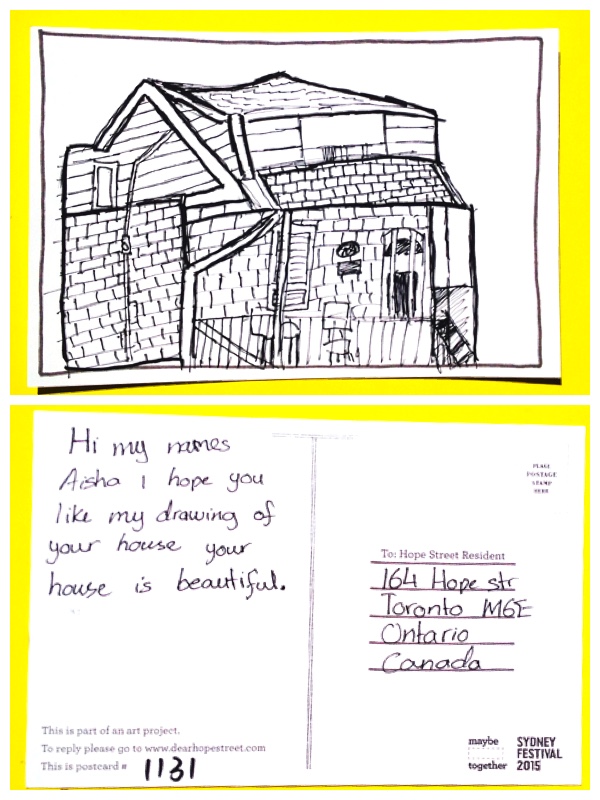 Hi my names
Aisha I hope you
like my drawing of
your house your
house is beautiful.
PLACE
POSTAGE
STAMP
HERE
To: Hope Street Resident
164 Hope str
Toronto M6E
Ontario
Canada
This is part of an art project.
To reply please go to www.dearhopestreet.com
This is postcard # 1131
maybe
together
SYDNEY
FESTIVAL
2015